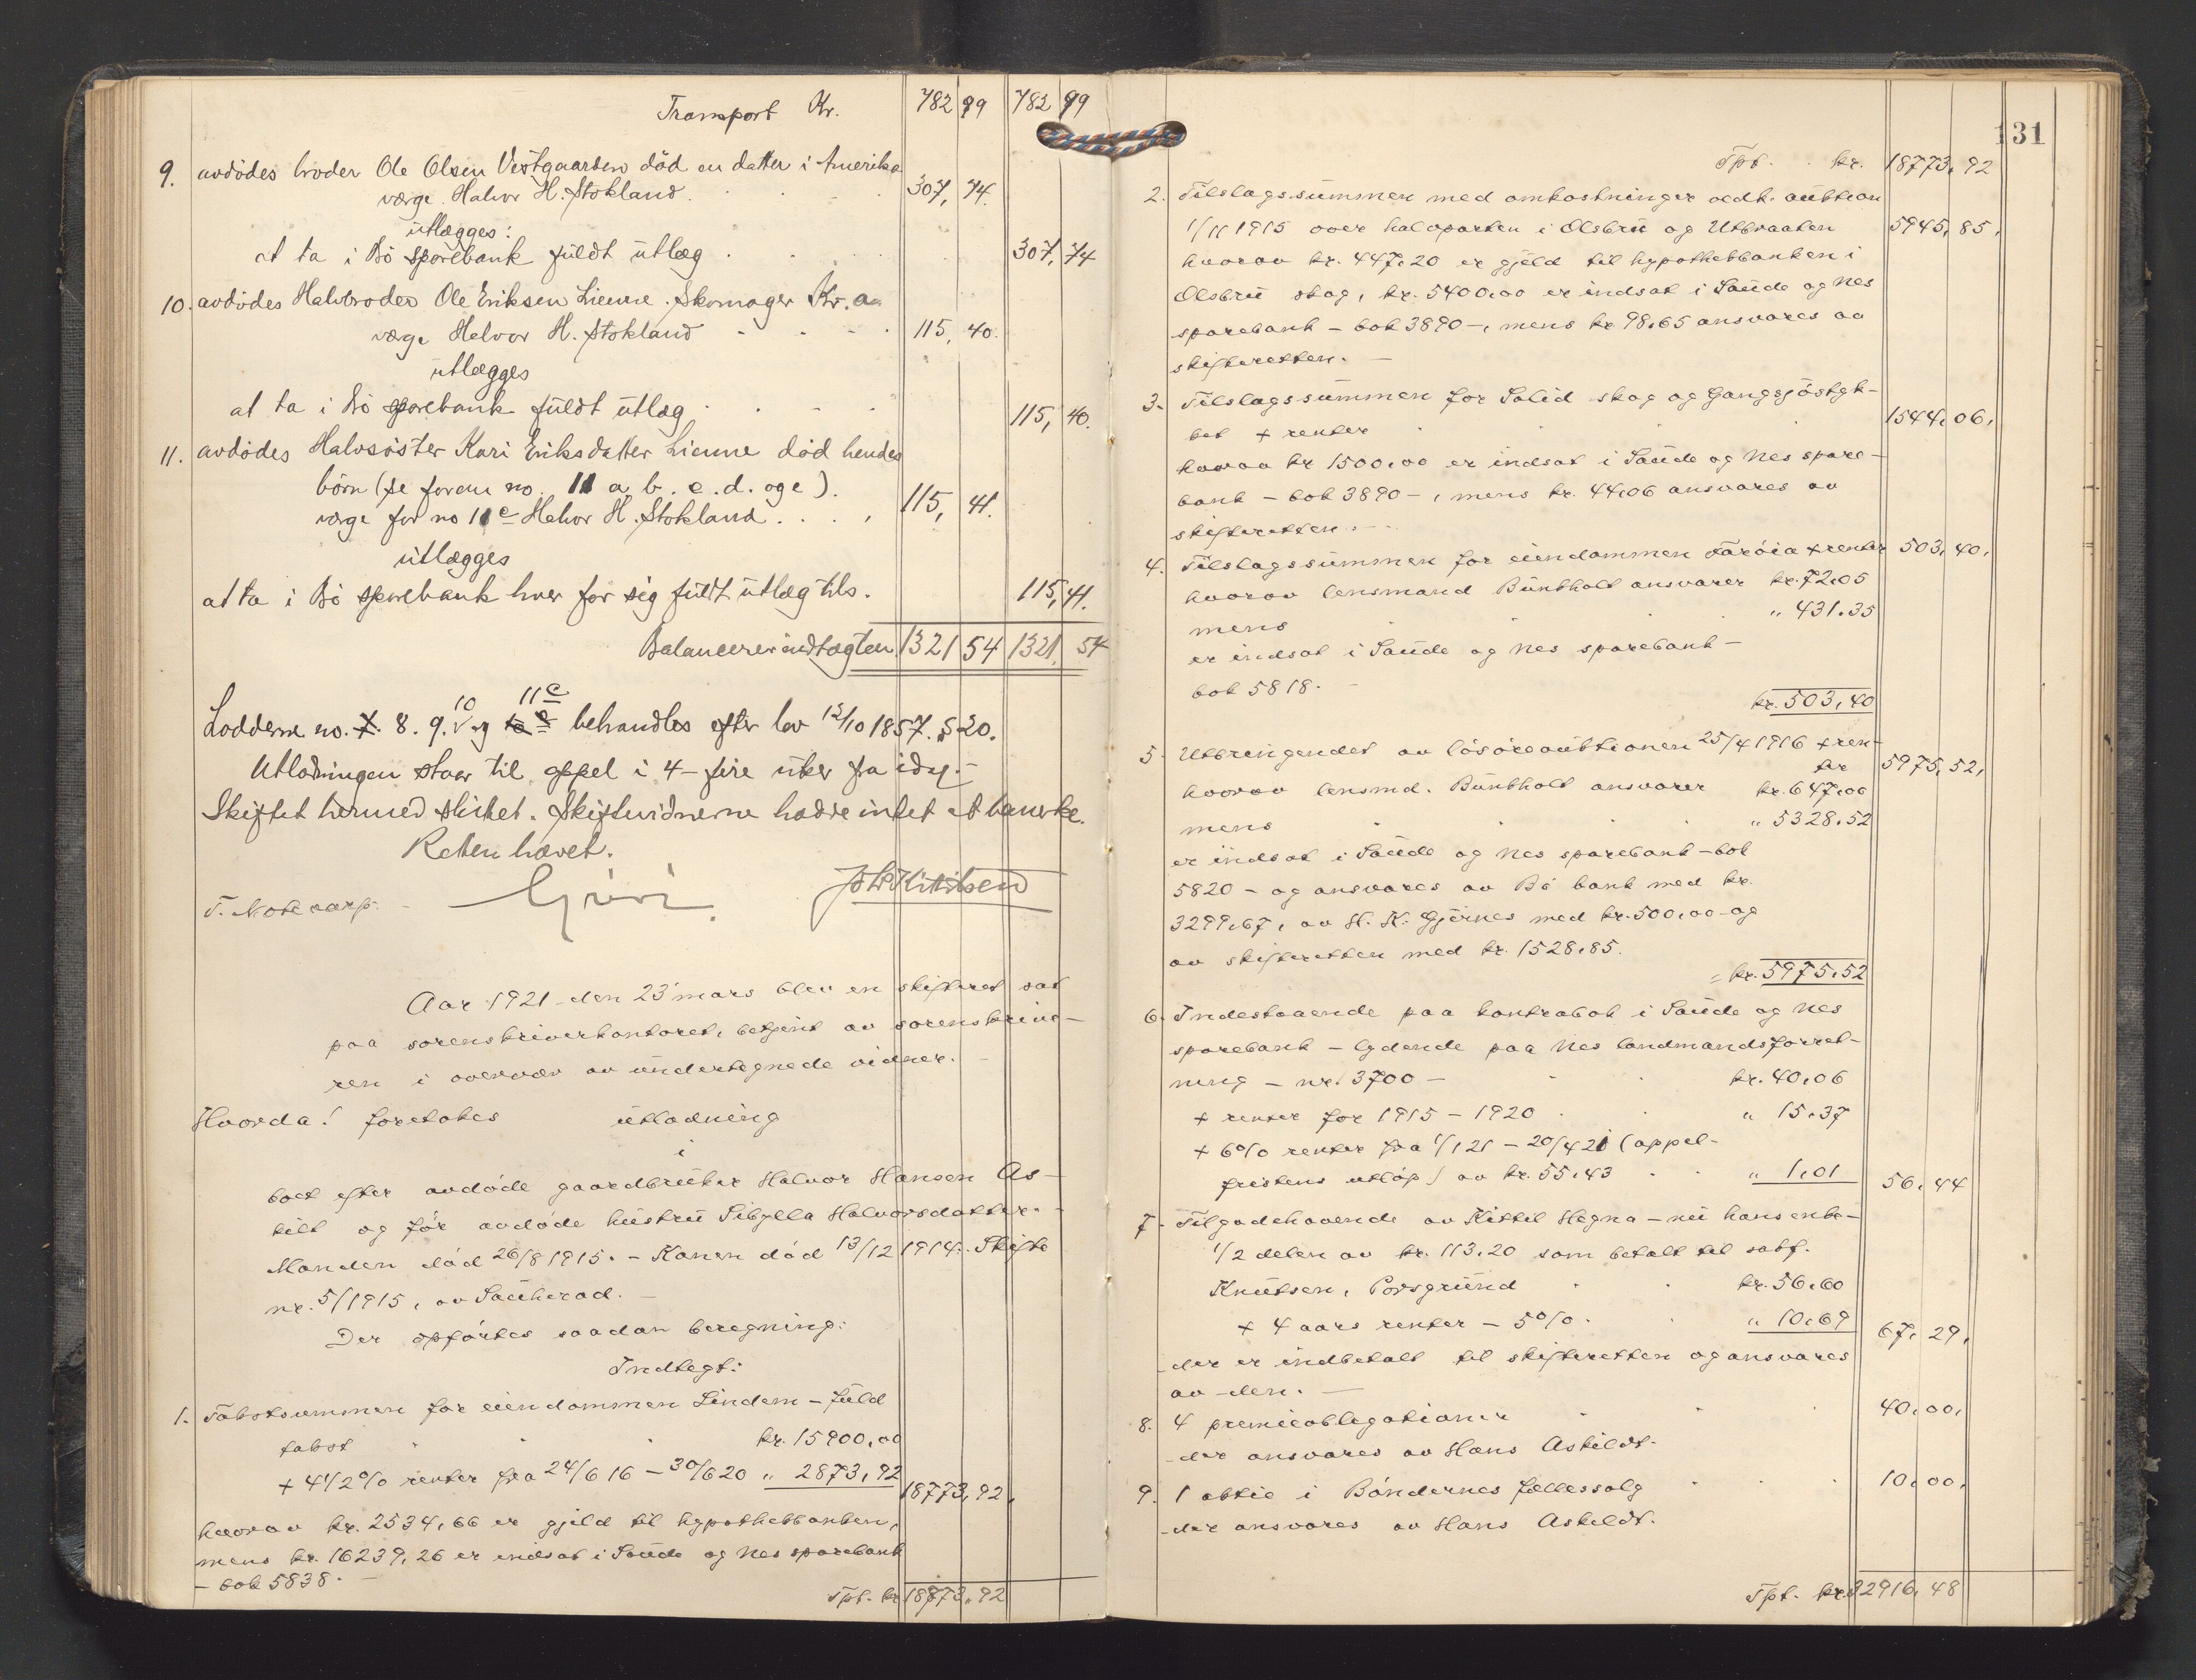 Transport Kr. 782 99 782 99
9. avdödes broder Ole Olsen Vestgaarden död en datter i Amerika
værge Halvor H. Stokland. 307, 74.
utlægges:
at ta i Bö sparebank fuldt utlæg 307, 74
10. avdödes Halvbroder Ole Eriksen Lienne. Skomager Kr.a.
værge Helvor H. Stokland 115, 40.
utlægges
at ta i Bö sparebank fuldt utlæg 115, 40.
11. avdödes Halvsöster Kari Eriksdatter Lienne död hendes
börn (se foran no. 11 a, b. c. d. og e).
værge for no 11 e Halvor H. Stokland 115, 41.
utlægges
at ta i Bö sparebank hver for sig fuldt utlæg tils. 115, 41.
Balancerer indtægten 1321 54 1321, 54
10 11 e
Lodderne no. 7. 8. 9. og behandles efter lov 12/10 1857. § 20.
Utlodningen staar til appel i 4 - fire uker fra idag. -
Skiftet hermed sluttet. Skiftevidnerne hadde intet at bemerke.
Retten hævet.
T. Notevarp.
Aar 1921 den 23' mars blev en skifteret sat
paa sorenskriverkontoret, betjent av sorenskrive-
ren i overvær av undertegnede vidner. -
Hvorda! foretokes utlodning
i
boet efter avdöde gaardbruker Halvor Hansen As-
kilt og för avdöde hustru Sibylla Halvorsdatter. -
Manden död 26/8 1915. - Konen död 13/12 1914. Skifte
nr. 5/1915, av Sauherad. -
Der opförtes saadan beregning:
Indtegt:
1. Takstsummen for eiendommen Lindem - fuld
takst kr. 15900,00
+ 4 1/2 % renter fra 24/6 16 - 30/6 20 " 2873,92 18773,92,
hvorav kr. 2534,66 er gjeld til hypothekbanken,
mens kr. 16239,26 er indsat i Saude og Nes sparebank
- bok 5838. -
Tpt. kr 18773,92
131
Tpt. kr. 18773,92
2. Tilslagssummen med omkostninger vedk. auktion
1/11 1915 over halvparten i Olsbru og Utbraaten 5945,85,
hvorav kr. 447,20 er gjeld til hypothekbanken i
Olsbru skog, kr. 5400,00 er indsat i Saude og Nes
sparebank - bok 3890 -, mens kr 98,65 ansvares av
skifteretten. -
3. Tilslagssummen for Solid skog og Gangsjöstyk-
ket + renter 1544,06,
hvorav kr 1500,00 er indsat i Saude og Nes spare-
bank - bok 3890 -, mens kr. 44,06 ansvares av
skifteretten. -
4. Tilslagssummen for eiendommen + renter 503,40,
hvorav lensmand Bunkholt ansvarer kr. 72,05
mens " 431,35
er indsat i Saude og Nes sparebank -
bok 5818. -
kr. 503,40
5. Utbringendet av lösöreauktionen 25/4 1916 + ren-
ter 5975,52,
hvorav lensmd. Bunkholt ansvarer kr. 647,00
mens " 5328,52
er indsat i Saude og Nes sparebank - bok
5820 - og ansvares av Bö bank med kr.
3299,67, av H. K. Gjernes med kr. 500,00 og
av skifteretten med kr. 1528,85.
= kr. 5975,52
6. Indestaaende paa kontrabok i Saude og Nes
sparebank - lydende paa Nes landmandsforret-
ning - nr. 3700 - kr. 40,06
+ renter for 1915 - 1920 " 15,37
+ 6 % renter fra 1/1 21 - 20/4 21 (appel-
fristens utlöp) av kr. 55,43 " 1,01 56,44
7. Tilgodehavende av Kittil Hegna - nu hans enke -
1/2 delen av kr. 113,20 som betalt til sakf.
Knutsen, Porsgrund kr. 56,60
+ 4 aars renter - 5 % " 10,69 67,29,
der er indbetalt til skifteretten og ansvares
av den. -
8. 4 premieobligationer 40,00,
der ansvares av Hans Askildt.
9. 1 aktie i Böndernes fællessalg 10,00,
der ansvares av Hans Askildt.
Tpt. kr. 32916,48